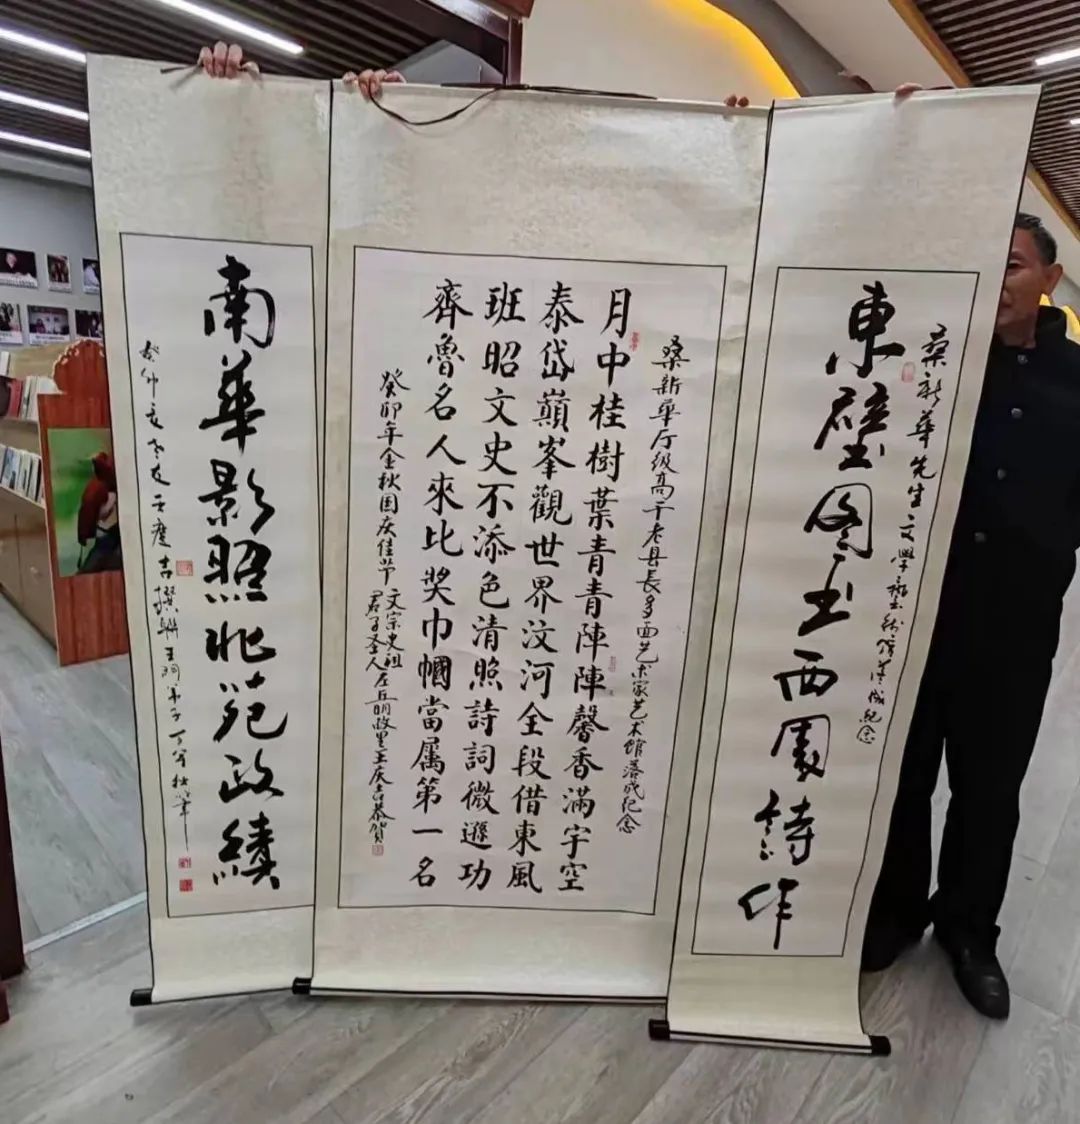 桑新華先生文學藝術馆落成紀念
東壁图书西園詩作
桑新华厅级高干老县長多面艺术家艺术馆落成纪念
月中桂樹葉青青陣陣馨香滿宇空
泰岱巔峯觀世界汶河全段借東風
班昭文史不添色清照詩詞微遜功
齊魯名人來比奖巾幗當属第一名
癸卯年金秋国庆佳节
文宗史祖
君子圣人左丘明故里王庆吉恭贺
南華影照北苑政績
癸卯 王慶吉撰聯 弟子